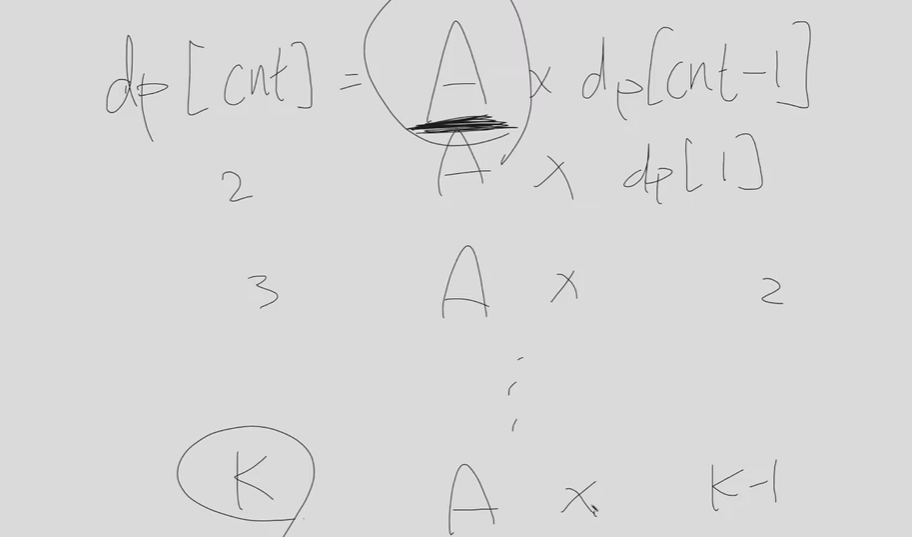 dp[cnt] = A x dp[cnt-1]
2 A x dp[1]
3 A x 2
⋮
K A x K-1